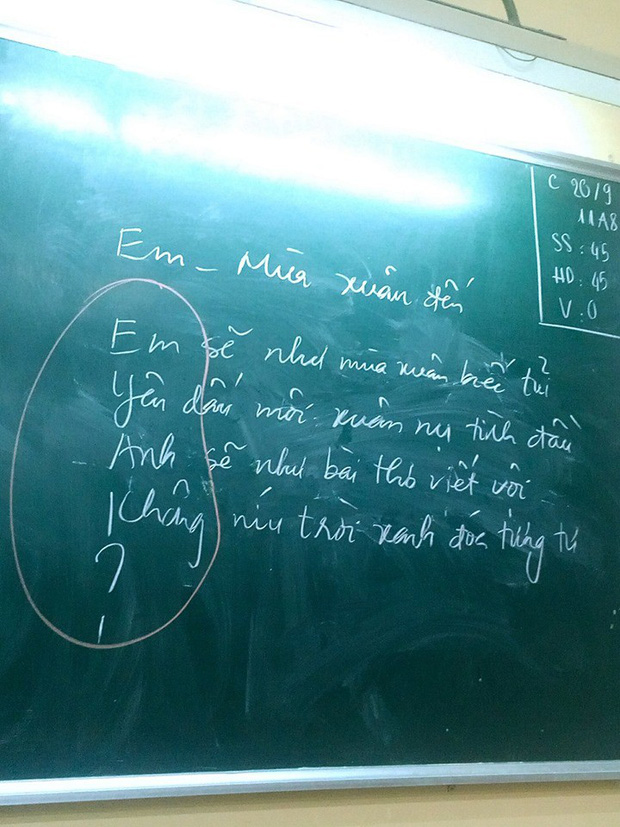 C 20/9
11A8
SS: 45
HD: 45
V: 0
Em - Mùa xuân đến
Em sẽ như mùa xuân biếc tứ
Yên dấu môi xuân nụ tình đầu
Anh sẽ như bài thơ viết vội
Không níu trời xanh đóa tương tư
?